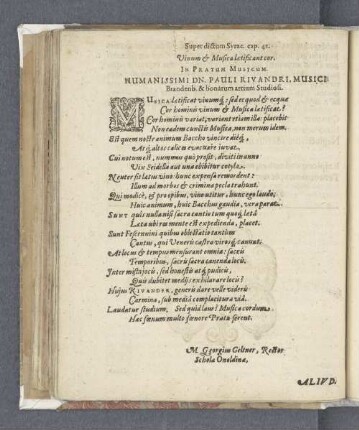 Super dictum Syrac. cap. 40.
Vinum & Musica lætificant cor.
IN PRATUM MUSICUM
HUMANISSIMI DN. PAULI RIVANDRI, MUSICI
Brandenb. & bonarum artium Studiosi.
MUSICA lætificat vinumq́; : sed ec quod & ecquæ
Cor hominis vinum & Musica lætificat?
Cor hominis variat, varient etiam illa: placebit
Non eadem cunctis Musica, non merum idem.
Est quem nostre animum Baccho vincire
Atq́; altos calices evacuare juvat.
Cui notum est, nummus quid prosit: divitis
Vix Seidlla aut una ebibitur cotyla.
Neuter sit latus vino: hunc expensa remordent:
Illum ad morbos & crimina pocla trahunt.
Qui modicè, & prospibus, vino utitur, hunc ego laudo;
Huic animum, huic Bacchum gaudia vera parat.
SUNT quis nullanisi sacra cantio tum quoq́; læta
Lætaubi res mente est expedienda, placet.
Sunt Fescennini quibus oblectatio tantùm
Cantus, qui Veneris castra virosq́; canunt.
At locus & tempus mensurant omnia: sacris
Temporibus, sacris sacra canenda locis.
Inter mistus jocis, sed honestis atq́; pudicis,
Quis dubitet medijs exhilarare locis?
Hujus RIVANDER, generis dare velle videris
Carmina, sub mediâ complacitura viâ.
Laudatur studium. Sed quid laus? Musica cordum
Hac fœnum multo fœnore Prata ferent.
M. Georgius Geltner, Rector
Scholæ Onoldinæ.
ALIUD.